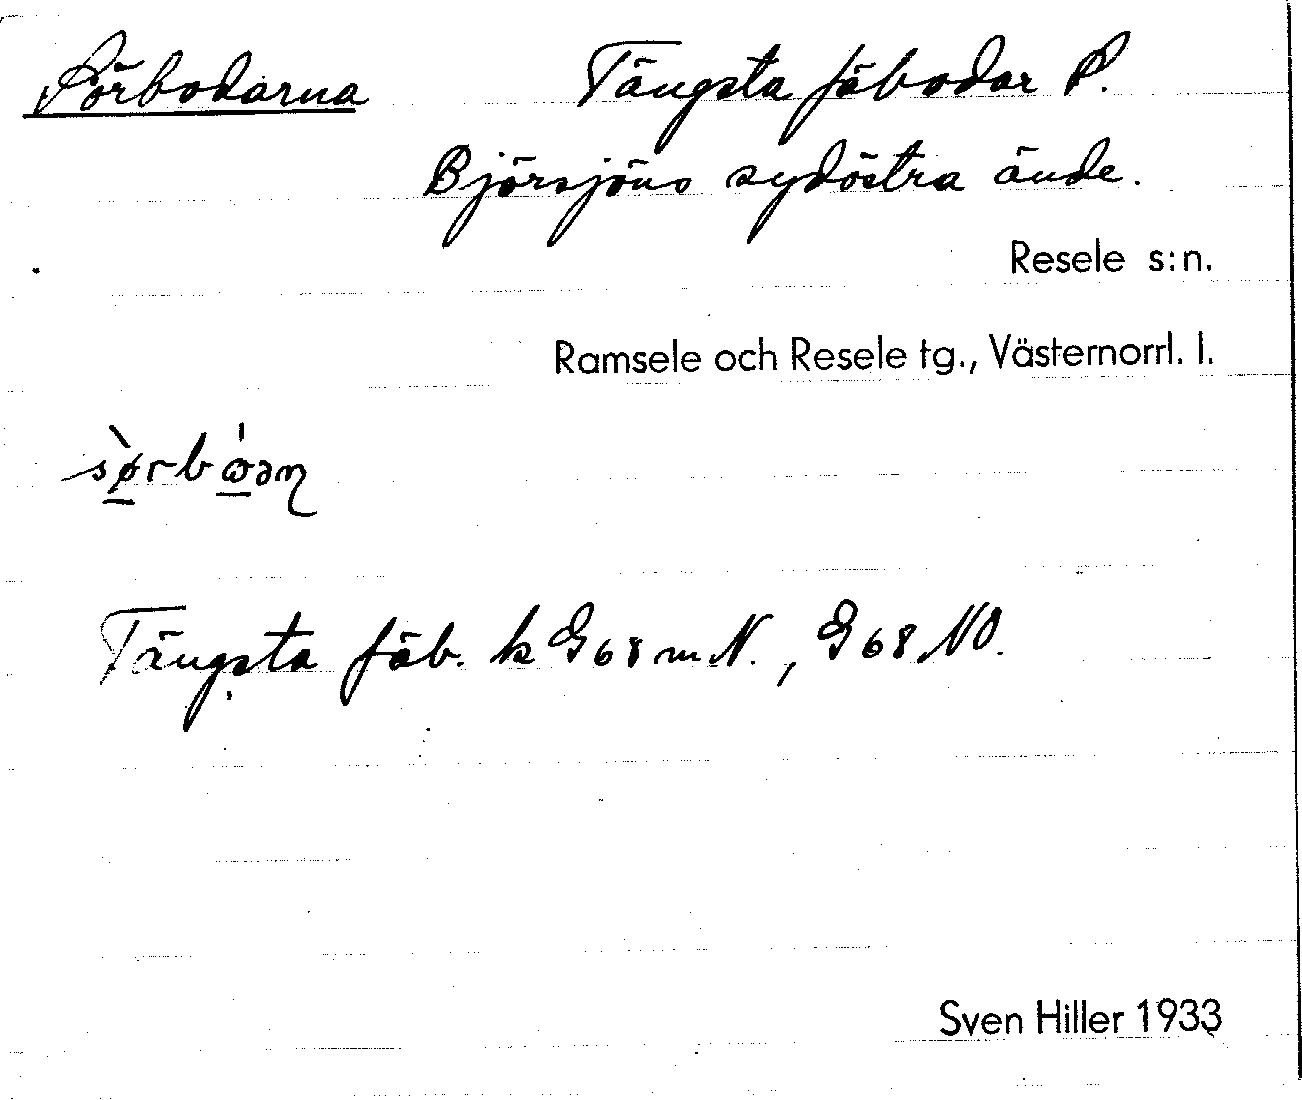 Sörbodarna Tängsta fäbodar P.
Björsjöns sydöstra ände.
Resele s:n.
Ramsele och Resele tg., Västernorrl. l.
Tängsta fäb. k G68mN., G68NO.
Sven Hiller 1933